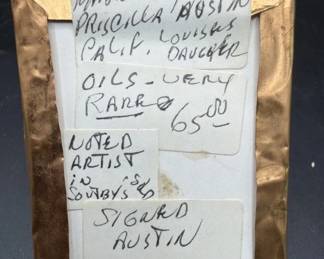 PRISCILLA AUSTIN
CALIF. LOUISE'S
DAUGHTER
OILS - VERY
RARE
65.00
NOTED
ARTIST
in
SOUTBYS
SIGNED
AUSTIN